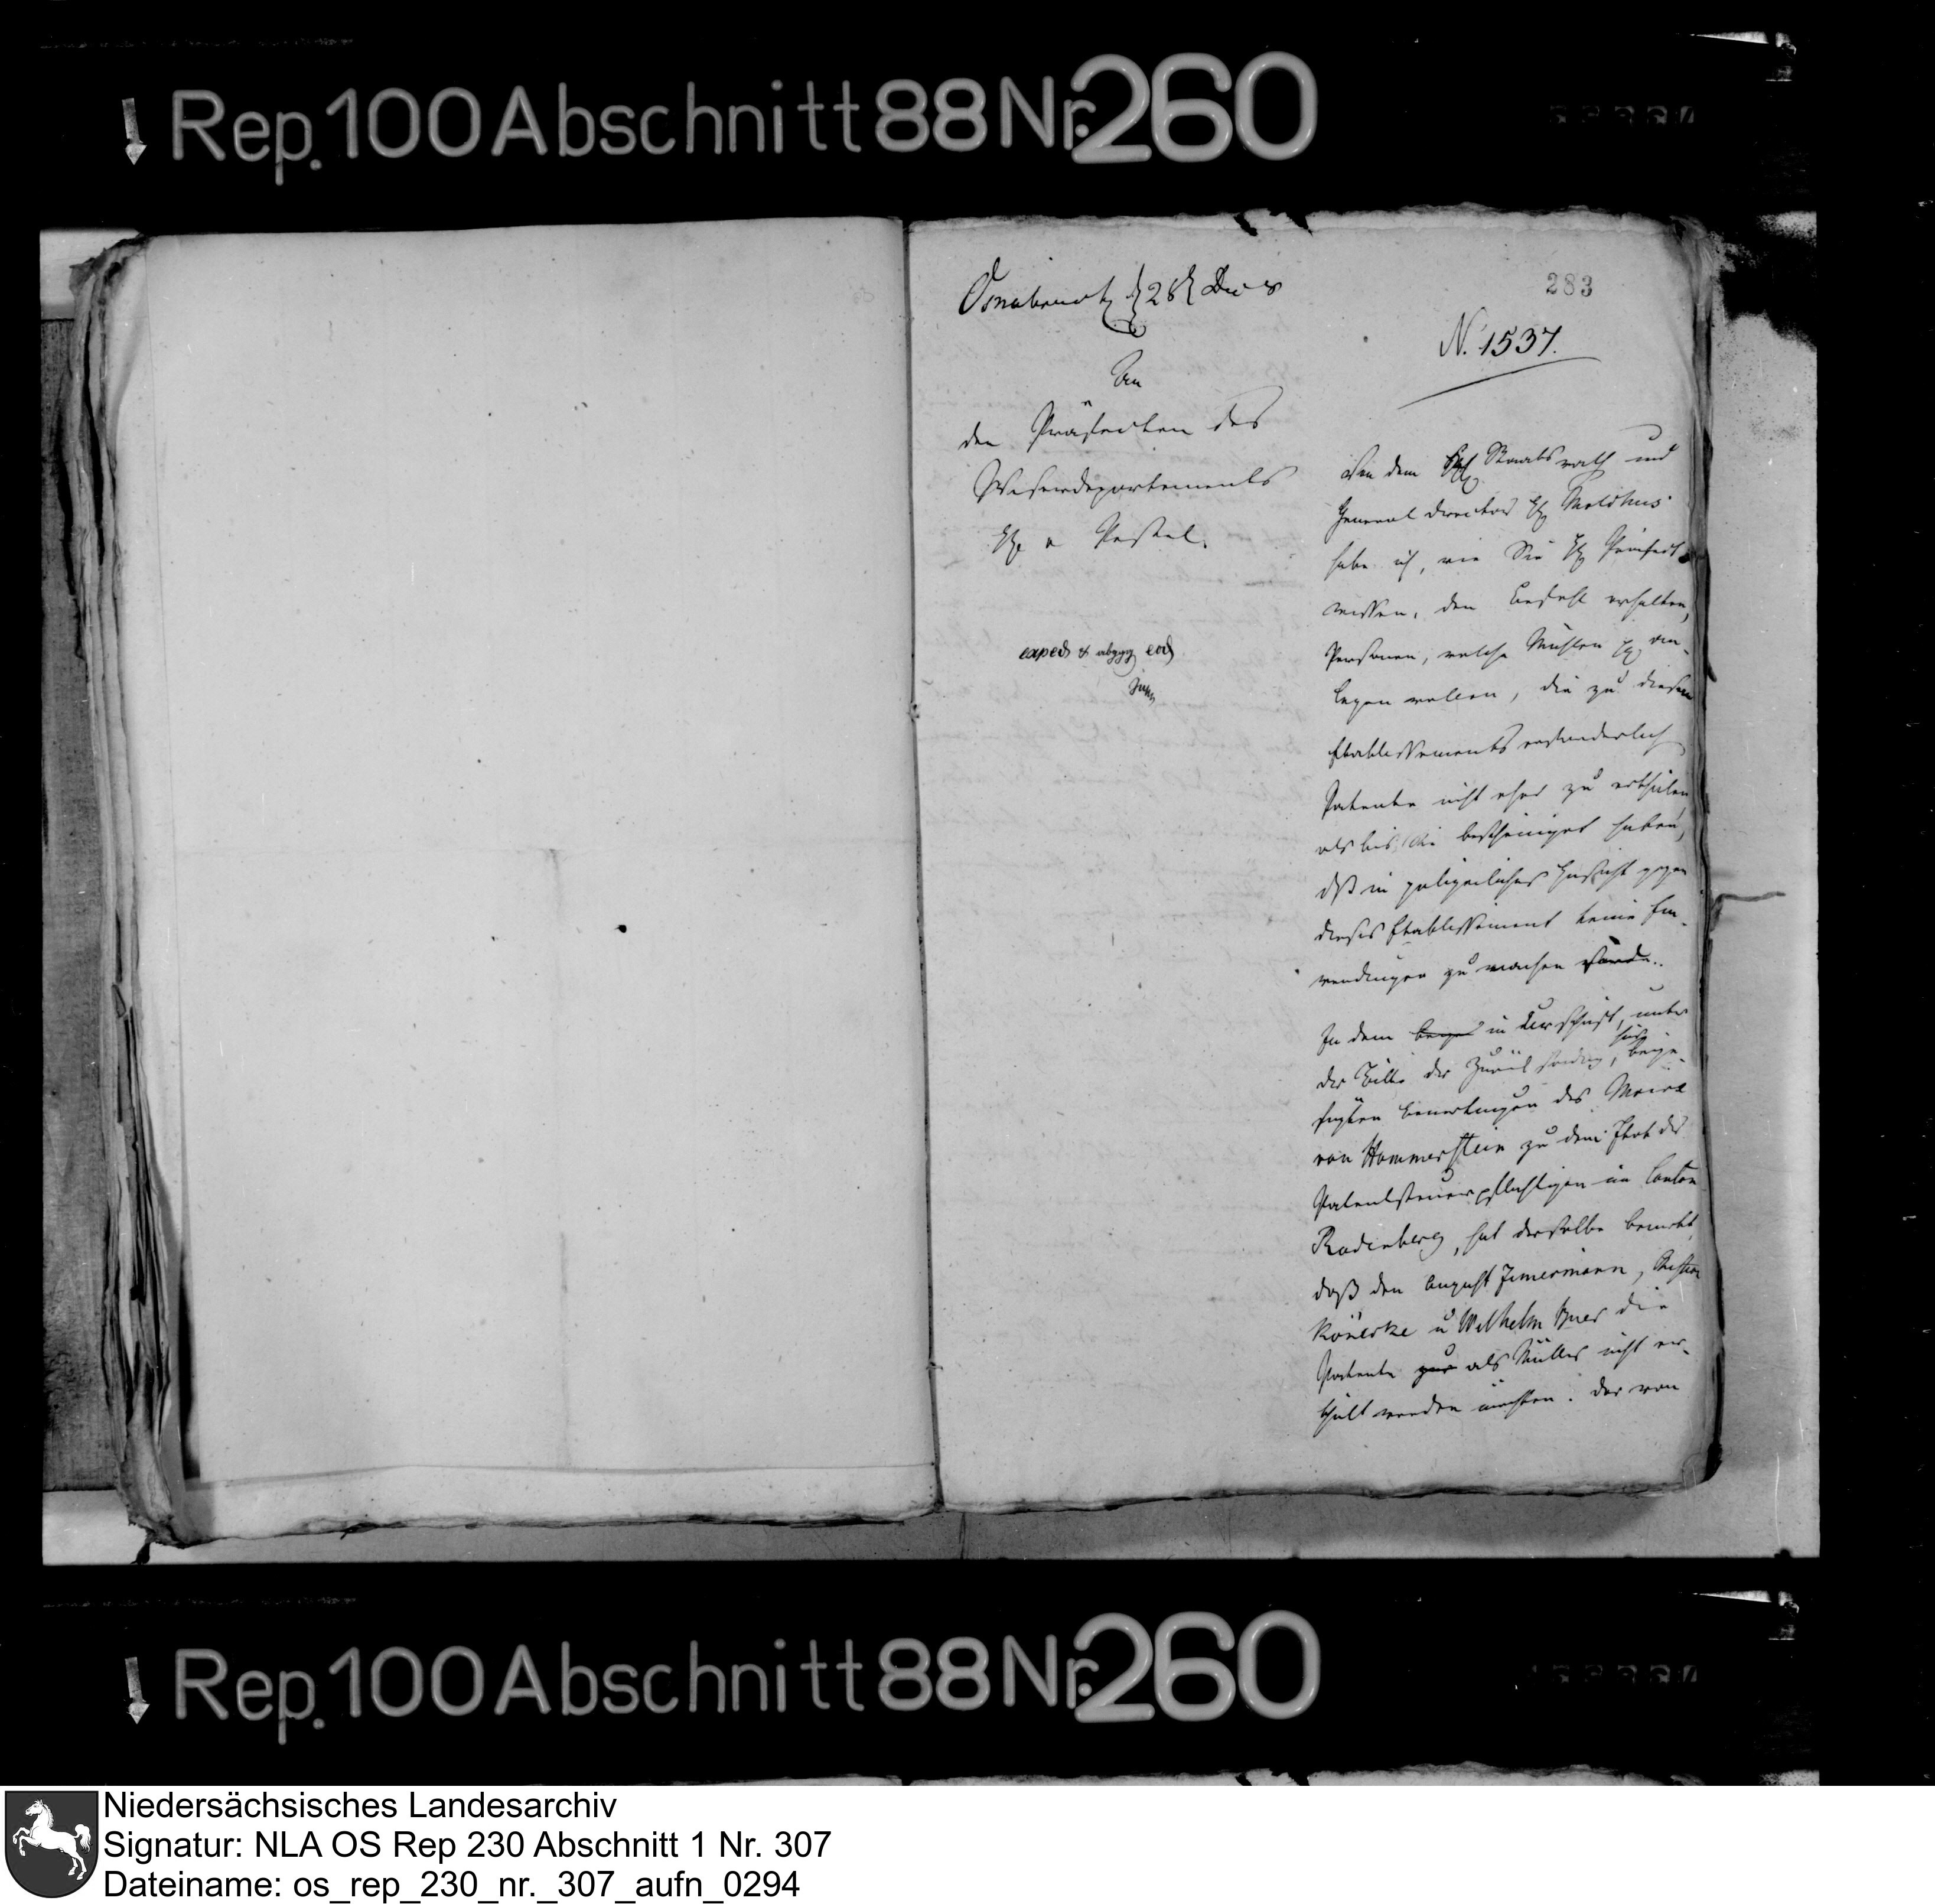 Rep. 100 Abschnitt 88 Nr. 260
283
Osnabrück d 28t Dec 8
N. 1537.
An
den Präfecten des
Weserdepartements
H. v Pestel.
exped & abggg eod
Von dem H. Staatsrath und
General Director H. Malchus
habe ich, wie Sie H. Präfect
wissen, den Befehl erhalten,
Personen, welche Mühlen pp an-
legen wollen, die zu diesen
Etablissements erforderlich
Patente nicht eher zu ertheilen
als bis sie bescheinigt haben,
dß in polizeilicher Hinsicht gegen
dieses Etablissement keine Ein-
wendungen zu machen
In dem in Urschrift, unter
der Bitte der Zurücksendung, hier beige-
fügten Bemerkungen des Maire
von Hammerstein zu dem Etat der
Patentsteuerpflichtigen im Canton
Rodenberg, hat derselbe bemerkt,
daß den August Zimermann,
Könecke u Wilhelm die
Patente als Müller nicht er-
theilt werden müsten. Der von
Rep. 100 Abschnitt 88 Nr. 260
Niedersächsisches Landesarchiv
Signatur: NLA OS Rep 230 Abschnitt 1 Nr. 307
Dateiname: os_rep_230_nr._307_aufn_0294